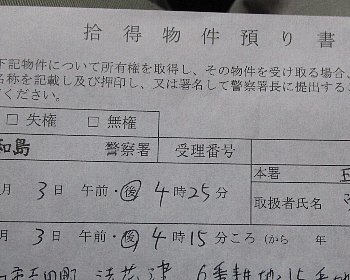 拾得物件預り書
下記物件について所有権を取得し、その物件を受け取る場合、
名称を記載し及び押印し、又は署名して警察署長に提出するこ
ください。
□ 失権 □ 無権
和島 警察署 受理番号
本署
月 3日 午前・後 4時25分
取扱者氏名
月 3日 午前・後 4時15分ころ(から 年
吉田町 法花津 6番耕地15番地